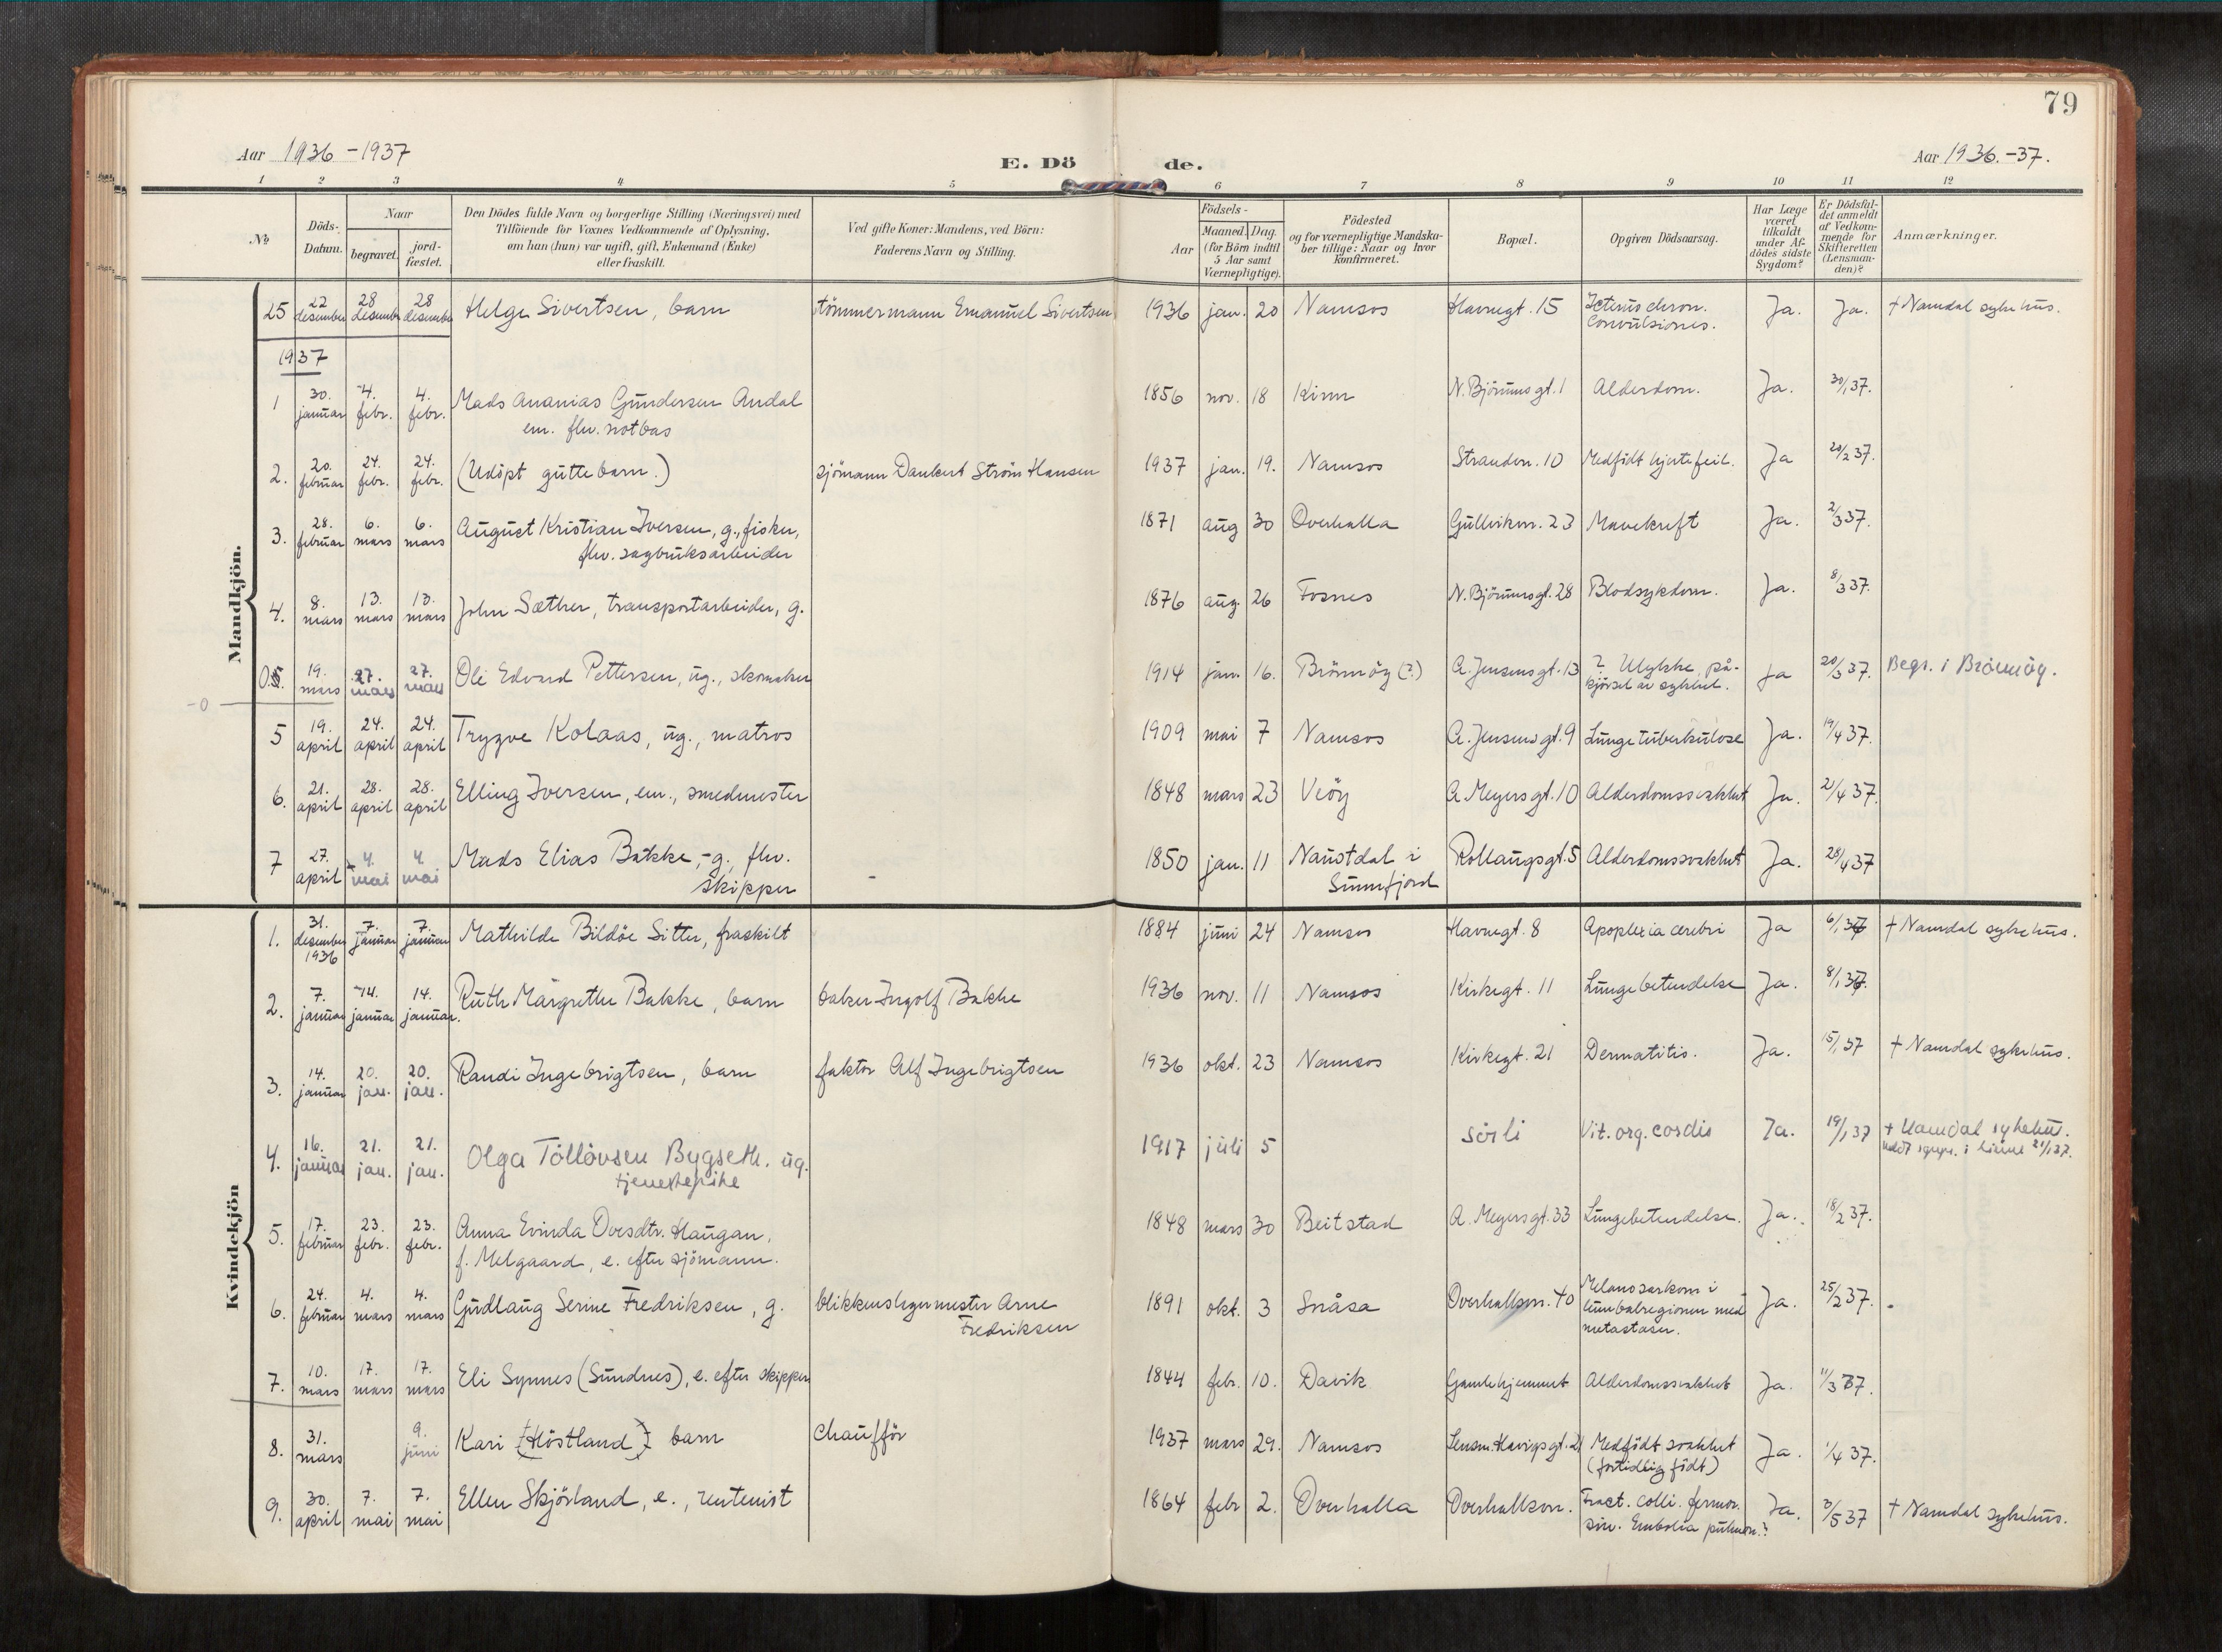 79
Aar 1936-1937
E. Döde.
Aar 1936.-37.
1 2 3 4 5 6 7 8 9 10 11 12
№
Döds-Datum.
Naar
begravet.
jordfæstet.
Den Dödes fulde Navn og borgerlige Stilling (Næringsvei) med
Tilföiende for Voxnes Vedkommende af Oplysning,
om han (hun) var ugift, gift, Enkemand (Enke)
eller fraskilt.
Ved gifte Koner: Mandens, ved Börn:
Faderens Navn og Stilling.
Födsels-
Aar
Maaned. Dag.
(for Börn indtil
5 Aar samt
Værnepligtige).
Födested
og for værnepligtige Mandska-
ber tillige: Naar og hvor
konfirmeret.
Bopæl.
Opgiven Dödsaarsag.
Har Læge
været
tilkaldt
under Af-
dödes sidste
Sygdom?
Er Dödsfal-
det anmeldt
af Vedkom-
mende for
Skifteretten
(Lensman-
den)?
Anmærkninger.
Mandkjön.
25 22 desember 28 desember 28 desember Helge Sivertsen, barn tömmermann Emanuel Sivertsen 1936 jan. 20 Namsos Havnegt. 15 Icterus chron. Convulsiones. Ja. Ja. + Namdal sykehus.
1937
1 30. januar 4. febr. 4. febr. Mads Ananias Gundersen Andal
em. fhv. notbas 1856 nov. 18 Kinn N. Bjørumsgt. 1 Alderdom. Ja. 30/1 37.
2. 20. februar 24. febr. 24. febr. (Udöpt guttebarn.) sjömann Dankert Ström Hansen 1937 jan. 19. Namsos Strandvn. 10 Medfödt hjertefeil. Ja 20/2 37.
3. 28. februar 6. mars 6. mars August Kristian Iversen, g., fisker,
fhv. sagbruksarbeider 1871 aug 30 Overhalla Gullvikvn. 23 Mavekreft Ja. 2/3 37.
4. 8. mars 13. mars 13. mars John Sæther, transportarbeider, g. 1876 aug. 26 Fosnes N. Bjørumsgt. 28 Blodsykdom. Ja. 8/3 37.
0.5. 19. mars 27. mars 27. mars Ole Edvard Pettersen, ug., skomaker 1914 jan. 16. Brönnöy (?) A. Jensensgt. 13 ? Ulykke, på-
kjörsel av sykkel. Ja 20/3 37. Begr. i Brönnöy.
-0
5 19. april 24. april 24. april Trygve Kolaas, ug., matros 1909 mai 7 Namsos A. Jensensgt. 9 Lungetuberkulose Ja. 19/4 37.
6. 21. april 28. april 28. april Elling Iversen, em., smedmester 1848 mars 23 Veöy A. Meyersgt. 10 Alderdomssvakhet Ja. 21/4 37.
7 27. april 4. mai 4. mai Mads Elias Bakke, g., fhv.
skipper 1850 jan. 11 Naustdal i
Sunnfjord Rollaugsgt. 5 Alderdomssvakhet Ja. 28/4 37
Kvindekjön
1. 31. desember 1936 7. januar 7. januar Mathilde Bildöe Sitter, fraskilt 1884 juni 24 Namsos Havnegt. 8 Apoplexia cerebri Ja 6/1 37 + Namdal sykehus.
2. 7. januar 14. januar 14. januar. Ruth Margrethe Bakke, barn baker Ingolf Bakke 1936 nov. 11 Namsos Kirkegt. 11 Lungebetendelse Ja. 8/1 37.
3. 14. januar 20. jan. 20. jan. Randi Ingebrigtsen, barn faktor Alf Ingebrigtsen 1936 okt. 23 Namsos Kirkegt. 21 Dermatitis. Ja. 15/1 37 + Namdal sykehus.
4. 16. januar 21. jan. 21. jan. Olga Töllövsen Bygseth. ug.
tjenestepike 1917 juli 5 Sörli Vit. org. cordis Ja. 19/1 37 + Namdal sykehus.
i 21/1 37.
5. 17. februar 23. febr. 23. febr. Anna Evinda Ovesdtr. Haugan,
f. Melgaard, e. efter sjömann. 1848 mars 30 Beitstad A. Meyersgt. 33 Lungebetendelse. Ja. 18/2 37.
6. 24. februar 4. mars 4. mars Gudlaug Serine Fredriksen, g. blikkenslagermester Arne
Fredriksen 1891 okt. 3 Snåsa Overhallsvn. 40 Melanosarkom i
lumbalregionen med
metastaser. Ja. 25/2 37.
7. 10. mars 17. mars 17. mars Eli Synnes (Sundnes), e. efter skipper 1844 febr. 10. Davik Gamlehjemmet Alderdomssvakhet Ja. 11/3 37.
8. 31. mars 9. juni Kari (Höstland) barn chaufför 1937 mars 29. Namsos Lensm. Havigsgt. 21 Medfödt svakhet
(fortidlig födt) Ja. 1/4 37.
9. 30. april 7. mai 7. mai Ellen Skjörland, e., rentenist 1864 febr 2. Overhalla Overhallsvn. Fract. colli. femor.
sin. Embolia pulmon.? Ja. 3/5 37 + Namdal sykehus.